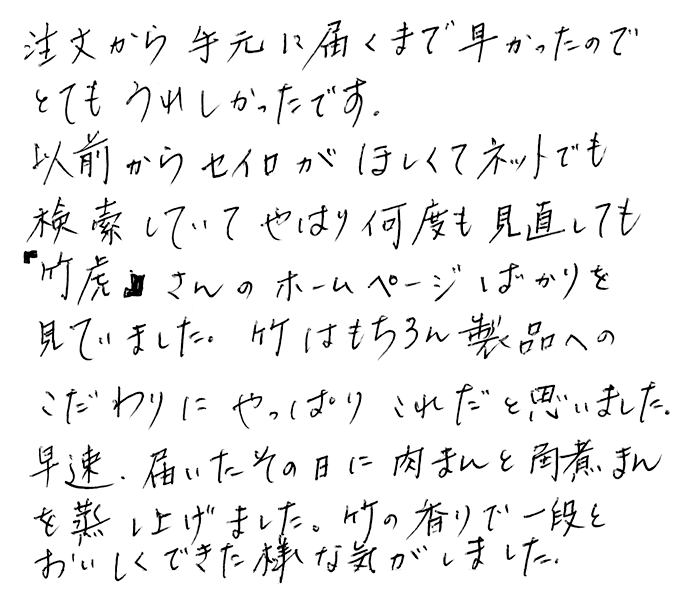 注文から手元に届くまで早かったので
とてもうれしかったです。
以前からセイロがほしくてネットでも
検索していてやはり何度も見直しても
『竹虎』さんのホームページばかりを
見ていました。竹はもちろん製品への
こだわりにやっぱりこれだと思いました。
早速、届いたその日に肉まんと角煮まん
を蒸し上げました。竹の香りで一段と
おいしくできた様な気がしました。